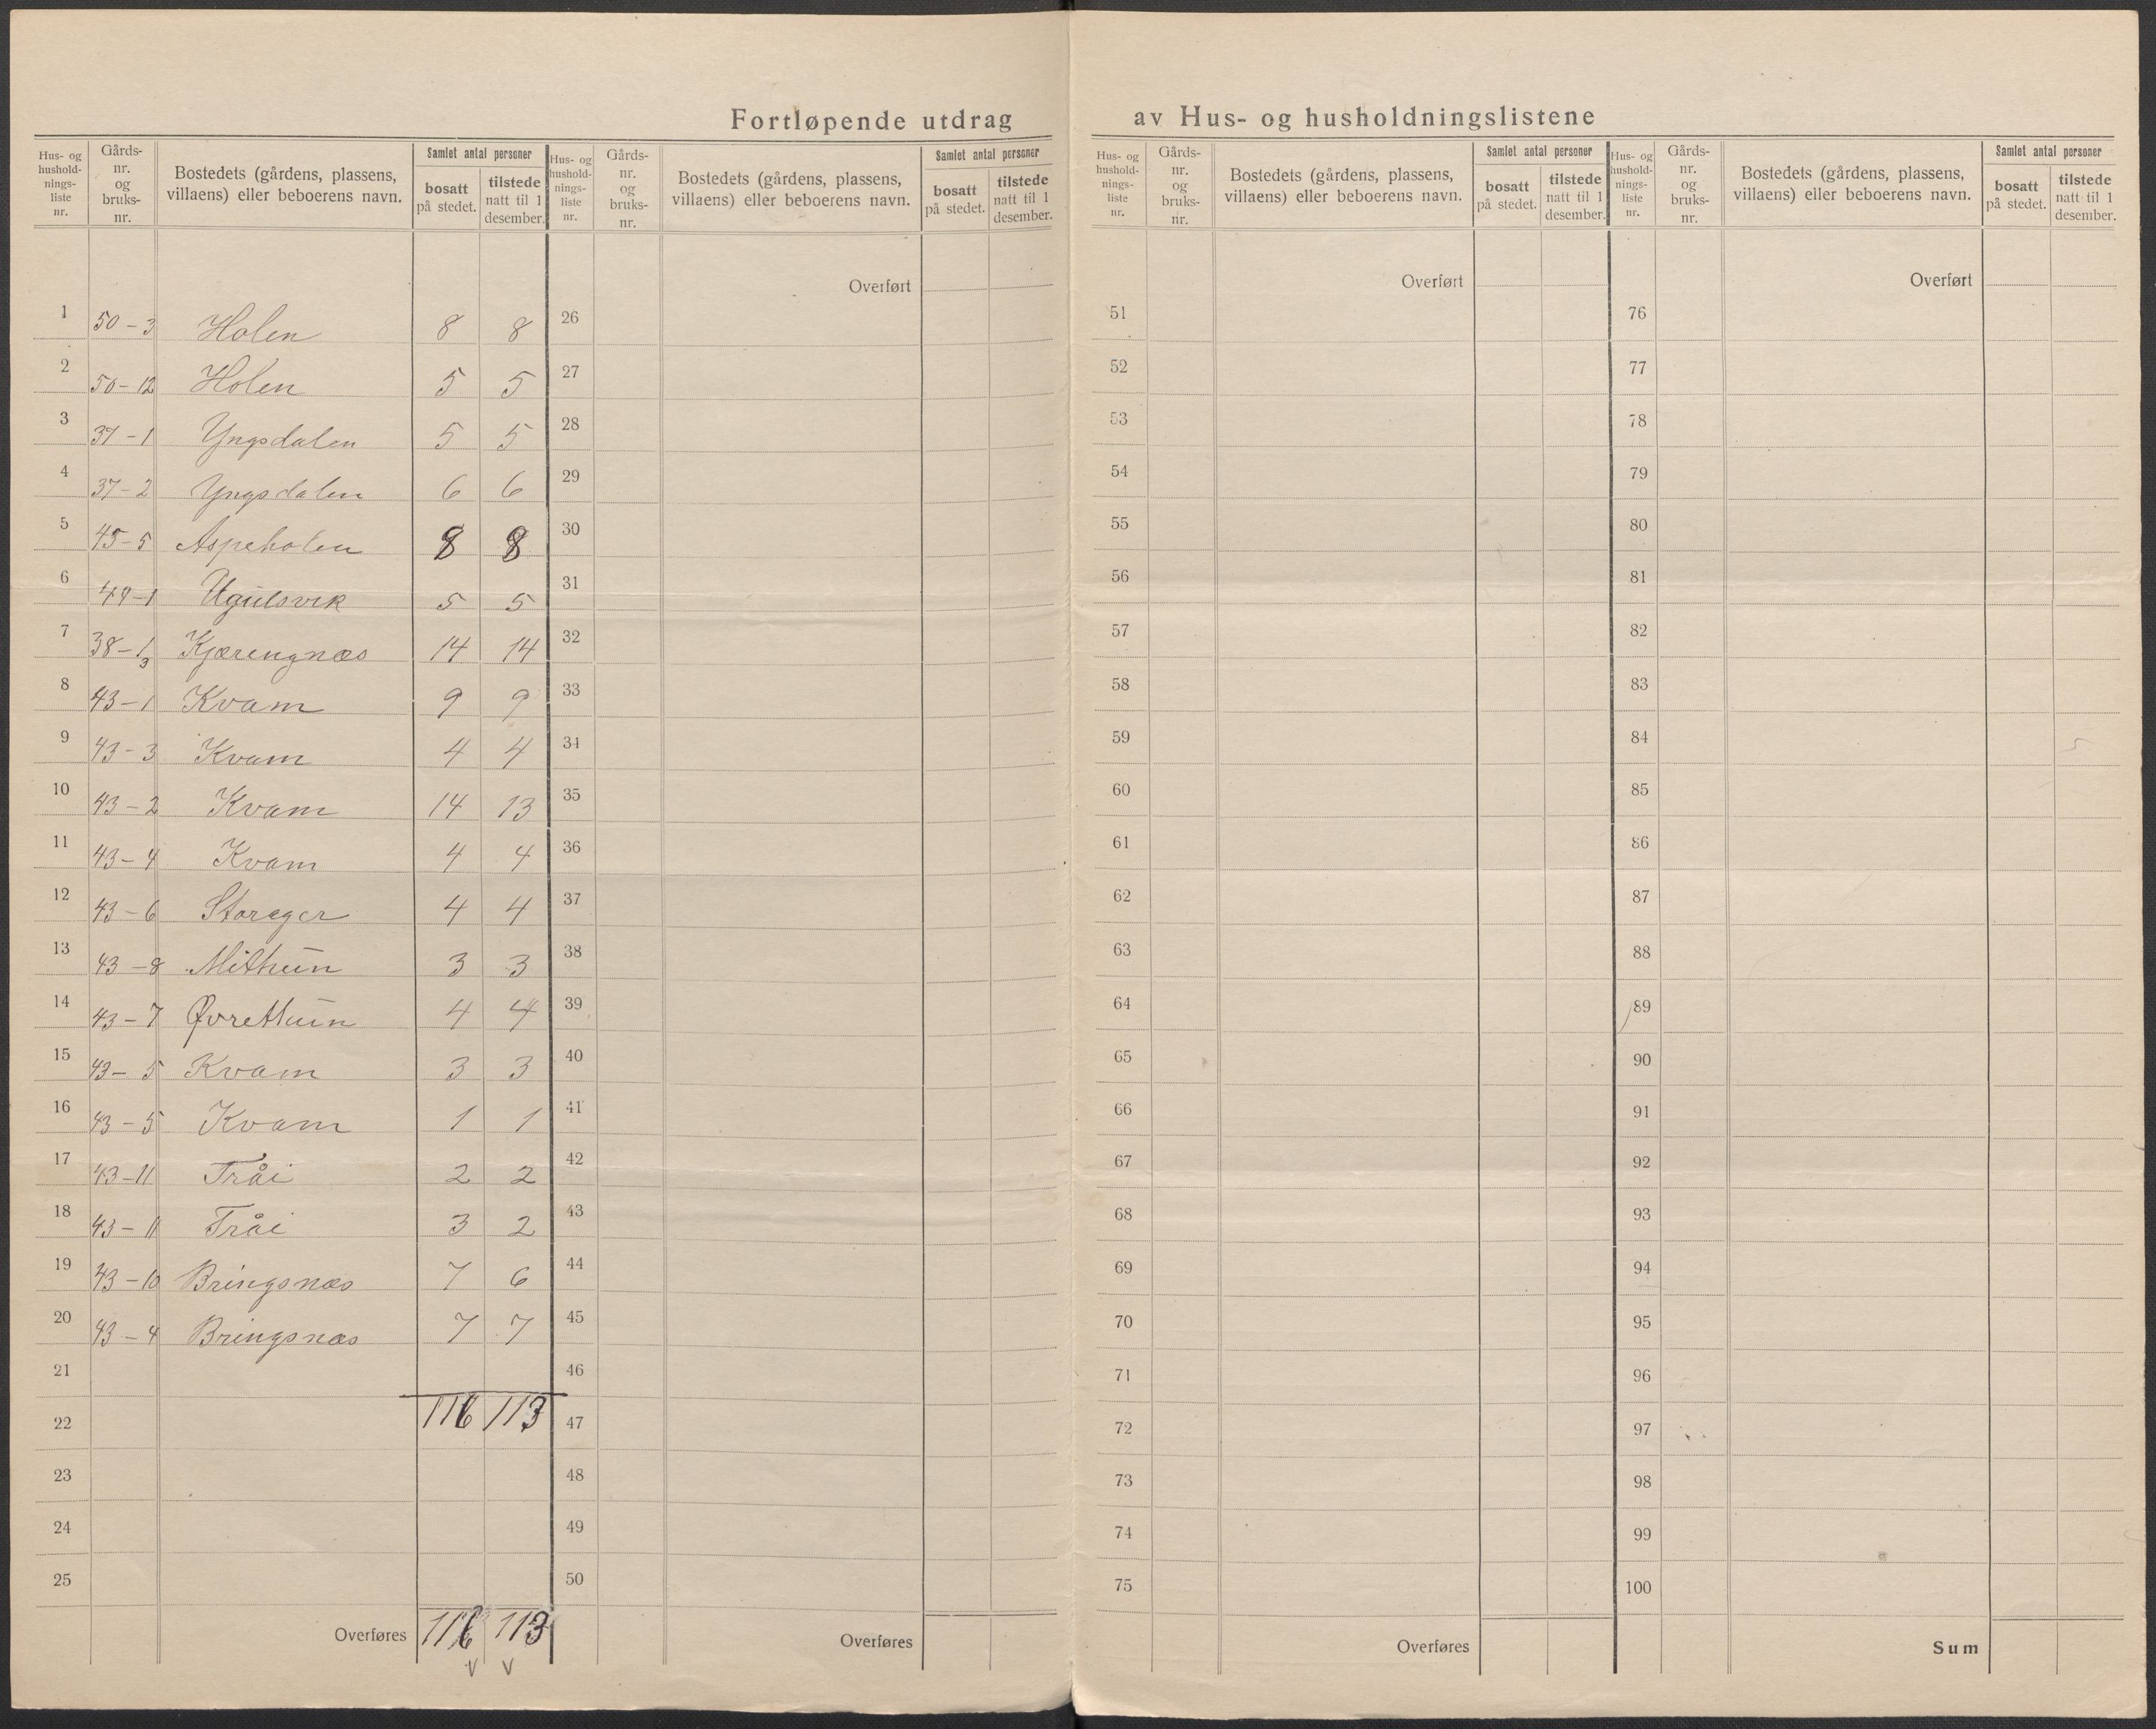 Fortløpende utdrag av Hus- og husholdningslistene
Hus- og hushold-nings-liste nr. Gårds-nr. og bruks-nr. Bostedets (gårdens, plassens, villaens) eller beboerens navn. Samlet antal personer bosatt på stedet. tilstede natt til 1 desember.
Hus- og hushold-nings-liste nr. Gårds-nr. og bruks-nr. Bostedets (gårdens, plassens, villaens) eller beboerens navn. Samlet antal personer bosatt på stedet. tilstede natt til 1 desember.
Hus- og hushold-nings-liste nr. Gårds-nr. og bruks-nr. Bostedets (gårdens, plassens, villaens) eller beboerens navn. Samlet antal personer bosatt på stedet. tilstede natt til 1 desember.
Hus- og hushold-nings-liste nr. Gårds-nr. og bruks-nr. Bostedets (gårdens, plassens, villaens) eller beboerens navn. Samlet antal personer bosatt på stedet. tilstede natt til 1 desember.
Overført Overført Overført
1 50-3 Holen 8 8 26 51 76
2 50-12 Holen 5 5 27 52 77
3 37-1 Yngsdalen 5 5 28 53 78
4 37-2 Yngsdalen 6 6 29 54 79
5 45-5 Aspeholen 8 8 30 55 80
6 49-1 Ugulsvik 5 5 31 56 81
7 38-1,3 Kjærengnæs 14 14 32 57 82
8 43-1 Kvam 9 9 33 58 83
9 43-3 Kvam 4 4 34 59 84 5
10 43-2 Kvam 14 13 35 60 85
11 43-4 Kvam 4 4 36 61 86
12 43-6 Storeger 4 4 37 62 87
13 43-8 Mithun 3 3 38 63 88
14 43-7 Øvrethun 4 4 39 64 89
15 43-5 Kvam 3 3 40 65 90
16 43-5 Kvam 1 1 41 66 91
17 43-11 Tråi 2 2 42 67 92
18 43-11 Tråi 3 2 43 68 93
19 43-10 Bringsnæs 7 6 44 69 94
20 43-4 Bringsnæs 7 7 45 70 95
21 46 71 96
22 116 113 47 72 97
23 48 73 98
24 49 74 99
25 50 75 100
Overføres 116 113 Overføres Overføres Sum
v v